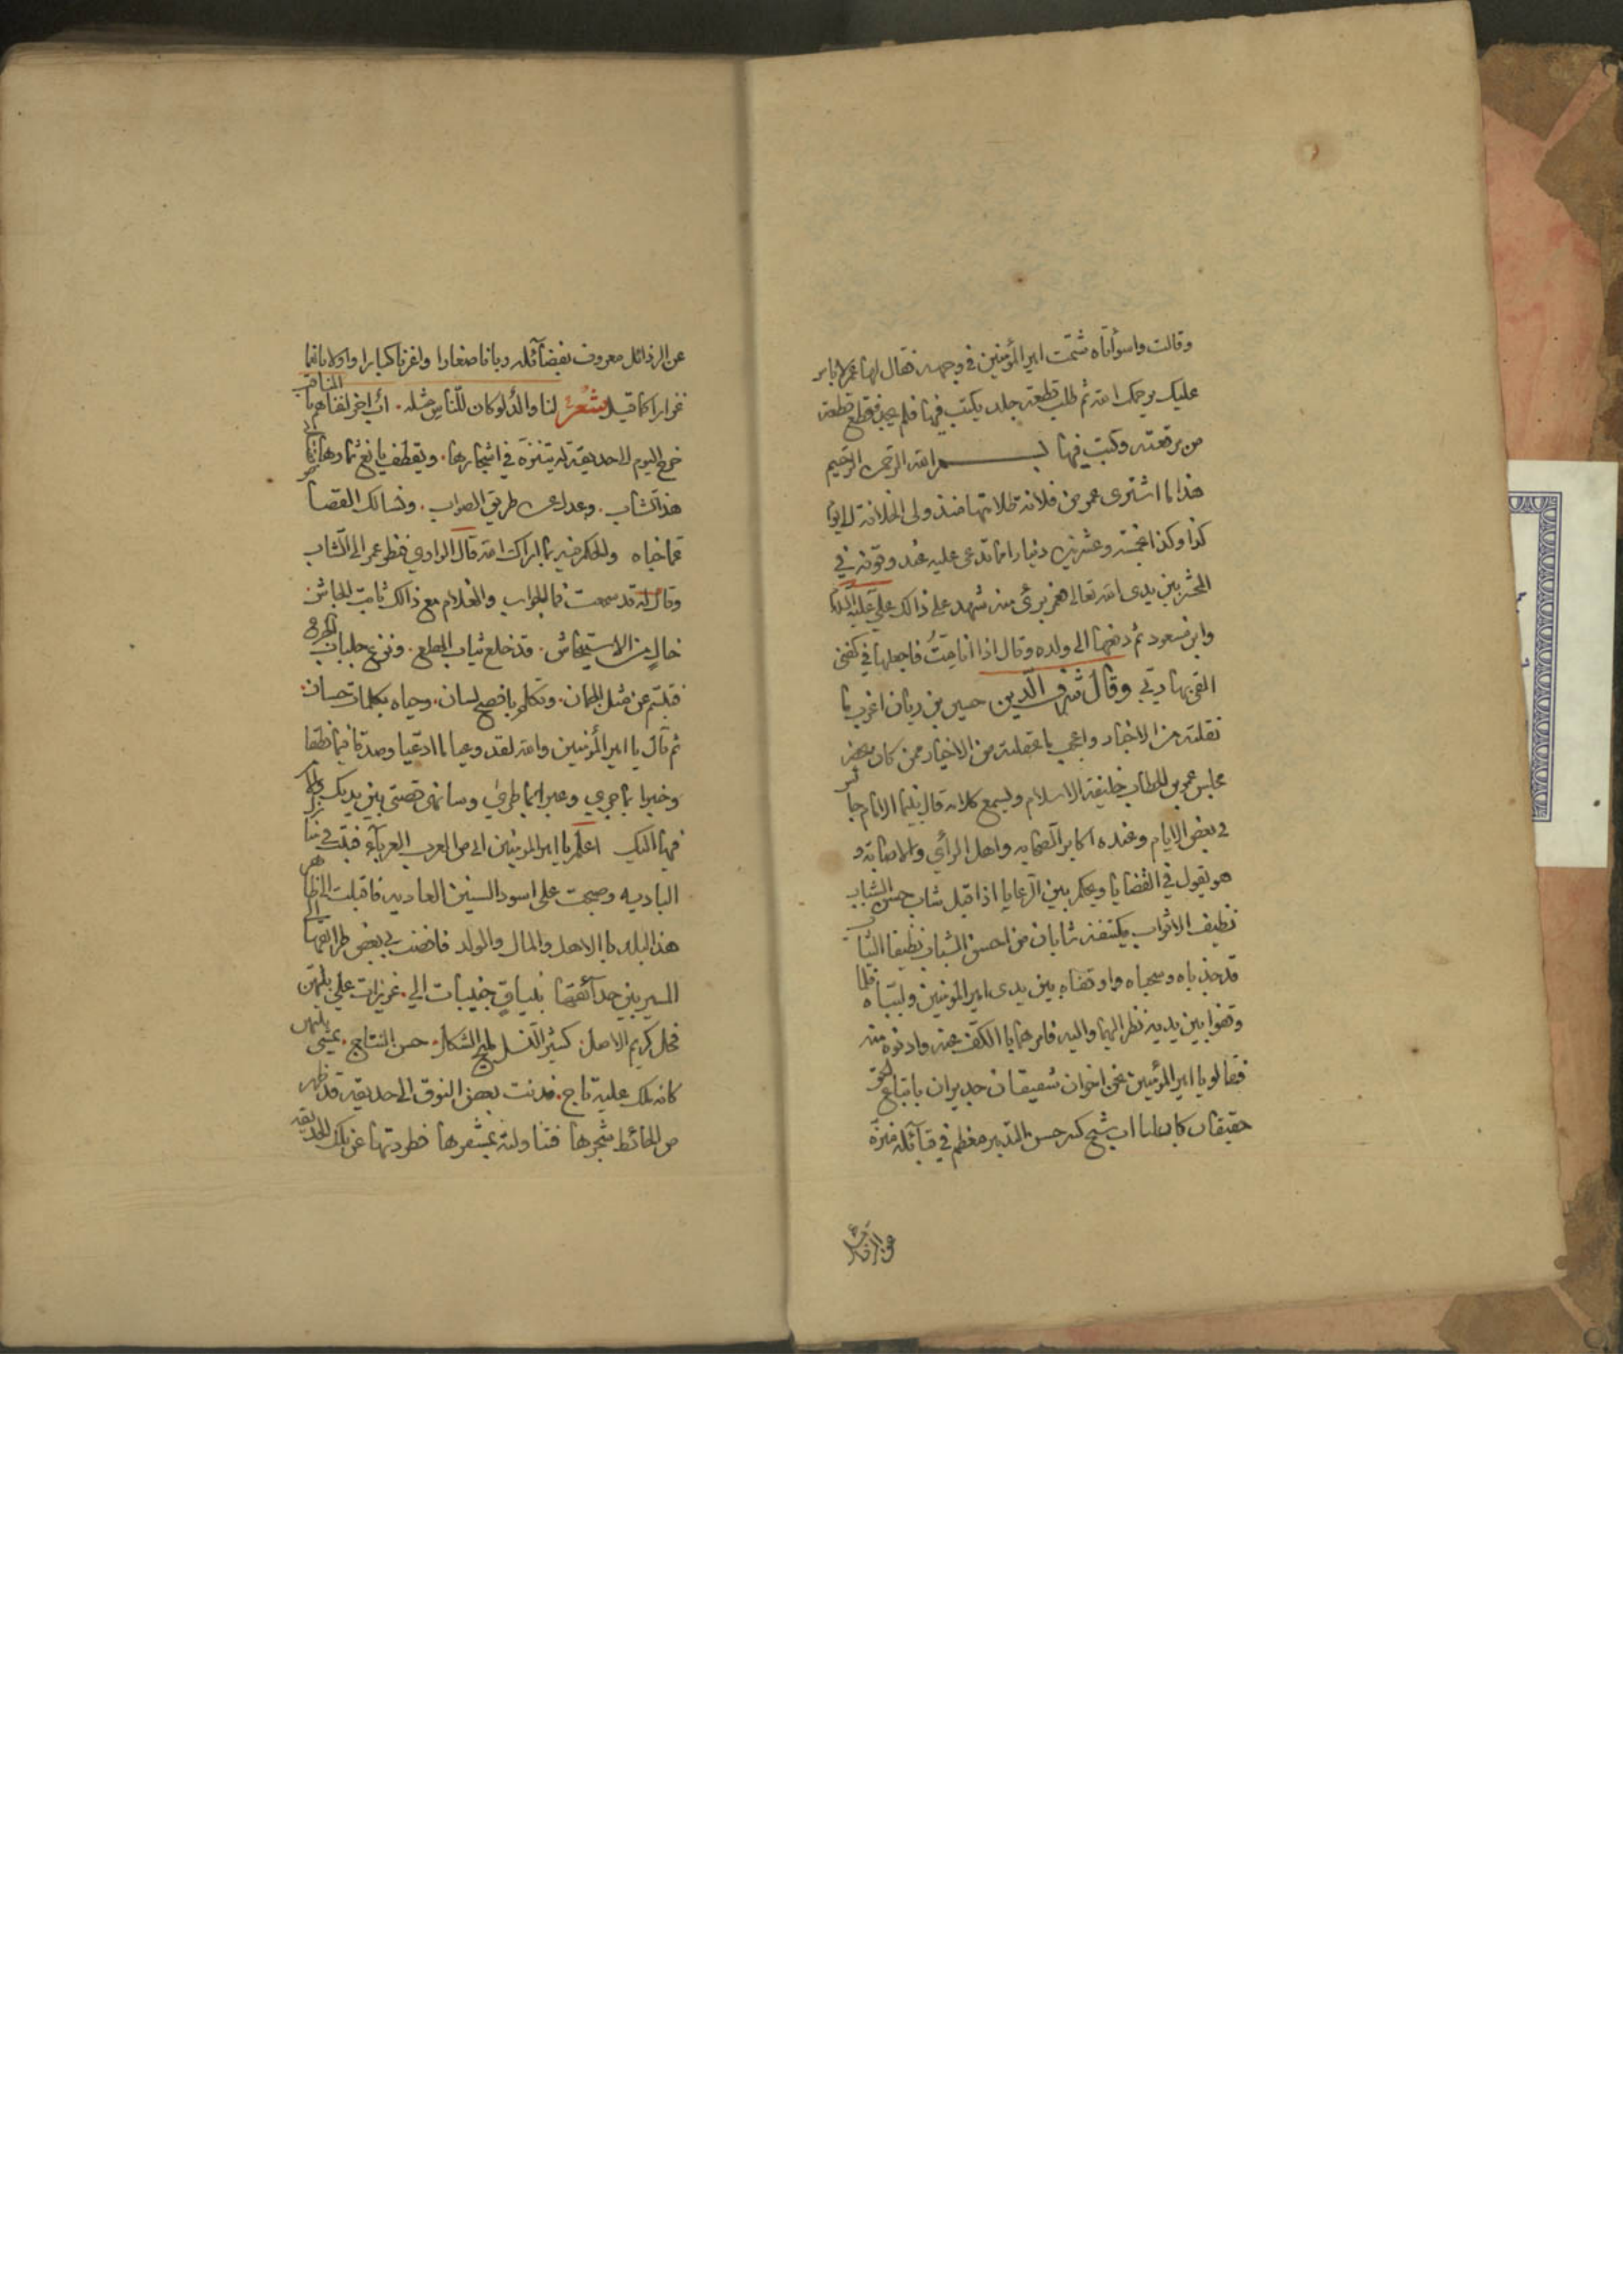 وقالت واسوأتاه شتمت امير المؤمنين في وجهه فقال لها عمر لا باس
عليك يرحمك الله ثم طلب قطعة جلد يكتب فيها فلم يجد فقطع قطعة
من مرقعته وكتب فيها بسم الله الرحمن الرحيم
هذا ما اشترى عمر من فلانة ظلامتها منذ ولى الخلافة الى يوم
كذا وكذا بخمسة وعشرين دينارا فما تدعى عليه عند وقوفه في
المحشر بين يدى الله تعالى فعمر برئ منه شهد على ذالك علي
وابن مسعود ثم دفعها الى ولده وقال اذا انا مت فاجعلها في كفنى
القى بها ربي وقال شرف الدين حسين بن ريان اغرب ما
نقلته من الاخبار واعجب ما عقلته من الاخيار ممن كان يحضر
مجلس عمر بن الخطاب خليفة الاسلام ويسمع كلامه قال بينما الامام جالس
في بعض الايام وعنده اكابر الصحابه واهل الرأي والاصابة و
هو يقول في القضايا ويحكم بين الرعايا اذا قبل شاب حسن الشباب
نظيف الاثواب يكتنفه شابان من احسن الشباب نظيفا الثياب
قد جذباه وسحباه واوقفاه بين يدى امير المؤمنين ولبباه فلما
وقفوا بين يديه نظر اليهما واليه فامرهما بالكف عنه وادنوه منه
فقالو يا امير المؤمنين نحن اخوان شقيقان جديران باتباع الحق
حقيقان كان لنا اب شيخ كبير حسن التدبير معظم في قبائله منزه
عن الرذائل
عن الرذائل معروف بفضآئله ربانا صغارا واعزنا كبارا واولانا نعما
غزارا كما قيل شعر لنا والد لو كان للناس مثله اب اخر اغناهم بالمناقب
خرج اليوم الى حديقة له يتنزه في اشجارها ويقطف يانع ثمارها
هذا الشاب وعدل عن طريق الصواب ونسالك القصاص
بما جناه والحكم فيه بما اراك الله قال الراوي فنظر عمر الى الشاب
وقال له قد سمعت فما الجواب والغلام مع ذالك ثابت الجاش
خال من الاستيحاش قد خلع ثياب الهلع ونزع جلباب الجزع
فتبسم عن مثل الجمان وتكلم بافصح لسان وحياه بكلمات حسان
ثم قال يا امير المؤمنين والله لقد وعيا ما ادعيا وصدقا فيما نطقا
وخبرا بما جرى وعبرا بما طرى وسانهى قصتى بين يديك والامر
فيها اليك اعلم يا امير المؤمنين انى من العرب العرباء
الباديه وصبحت على اسود السنين العاديه فاقبلت الى ظاهر
هذا البلد بالاهل والمال والولد فافضت بي بعض طرائقها الى
المسير بين حدآئقها بنياق حبيبات الي عزيزات علي بينهن
فحل كريم الاصل كثير النسل مليح الشكل حسن النتاج يمشى بينهن
كانه ملك عليه تاج فدنت بعض النوق الى حديقة قد ظهر
من الحائط شجرها فتناولته بمشفرها فطردتها عن تلك الحديقه